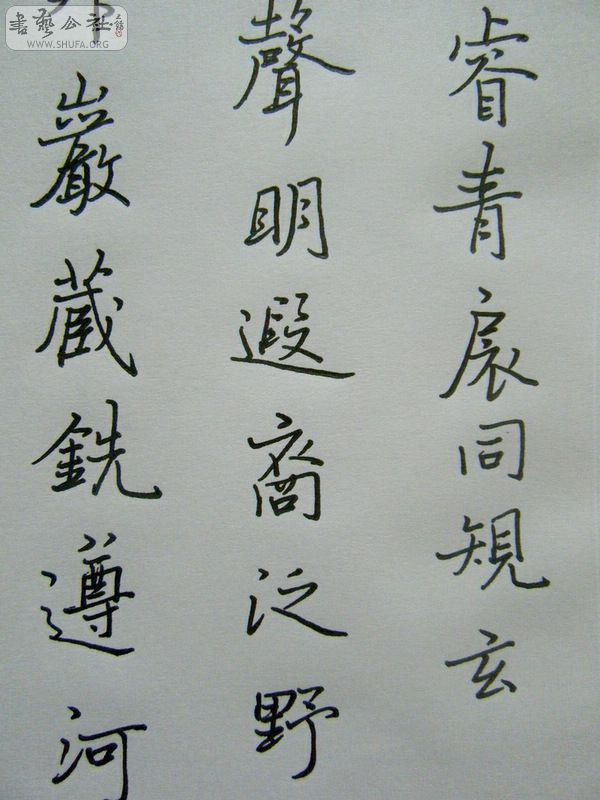 書藝公社
WWW.SHUFA.ORG
睿青扆同規玄
聲明遐裔泛野
巖蔵銑遵河